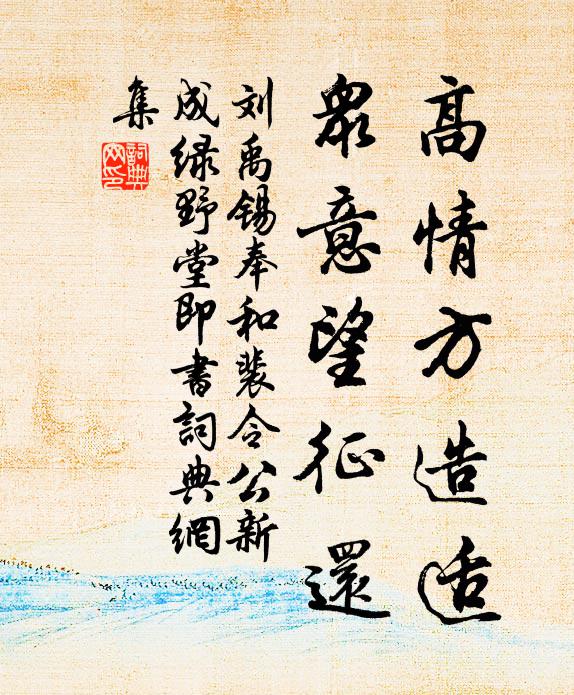 高情方造适
眾意望征還
刘禹锡奉和裴令公新
成绿野堂即書詞典網
集
詞典網印